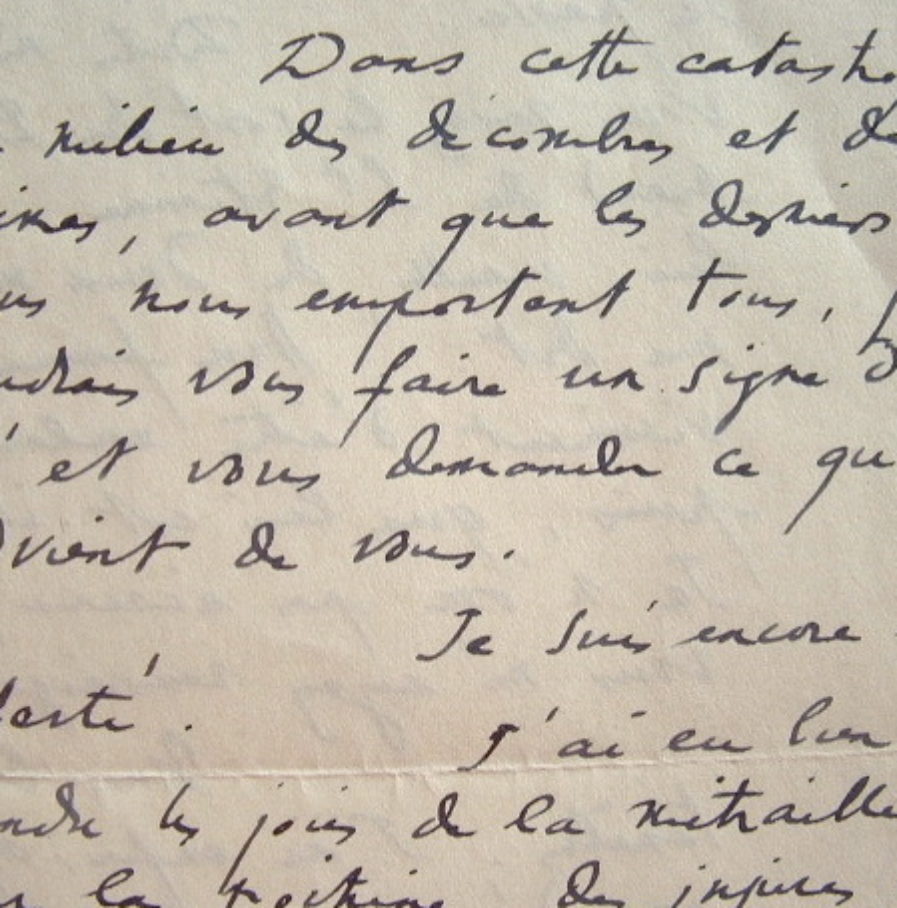 Dans cette catastro
milieu des décombres et de
ines, avant que les derniers
us nous emportent tous, je
udrais vous faire un signe d
et vous demander ce qu
vient de vous.
Je suis encore
lesté.
J'ai eu bien
ndre les joies de la mitraille
la des injures